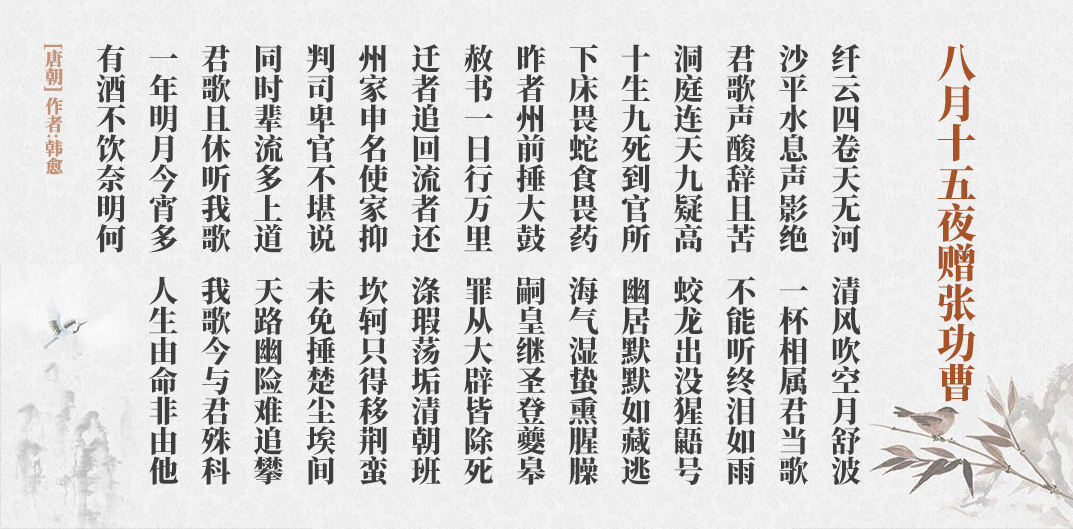 八月十五夜赠张功曹
纤云四卷天无河 清风吹空月舒波
沙平水息声影绝 一杯相属君当歌
君歌声酸辞且苦 不能听终泪如雨
洞庭连天九疑高 蛟龙出没猩鼯号
十生九死到官所 幽居默默如藏逃
下床畏蛇食畏药 海气湿蛰熏腥臊
昨者州前捶大鼓 嗣皇继圣登夔皋
赦书一日行万里 罪从大辟皆除死
迁者追回流者还 涤瑕荡垢清朝班
州家申名使家抑 坎轲只得移荆蛮
判司卑官不堪说 未免捶楚尘埃间
同时辈流多上道 天路幽险难追攀
君歌且休听我歌 我歌今与君殊科
一年明月今宵多 人生由命非由他
有酒不饮奈明何
[唐朝] 作者:韩愈